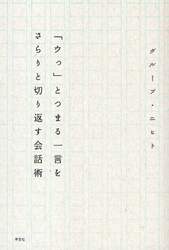 「ウっ」とつまる一言を
さらりと切り返す会話術
グループ・ニヒト